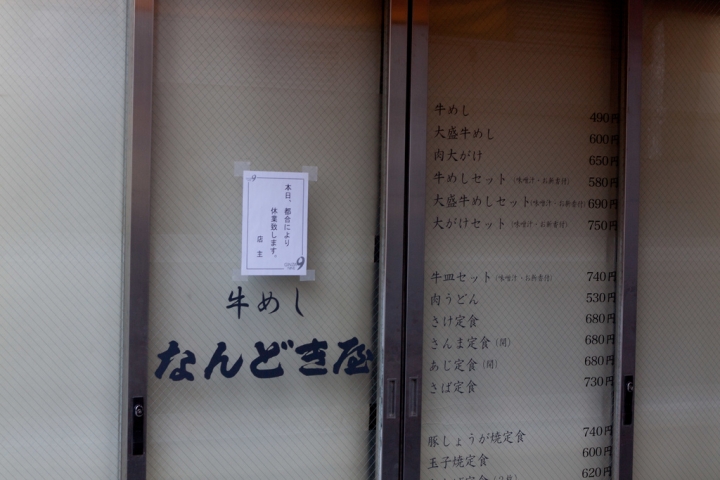 本日、都合により
休業致します。
店主
牛めし
なんどき屋
牛めし 490円
大盛牛めし 600円
肉大がけ 650円
牛めしセット(味噌汁・お新香付) 580円
大盛牛めしセット(味噌汁・お新香付) 690円
大がけセット(味噌汁・お新香付) 750円
牛皿セット(味噌汁・お新香付) 740円
肉うどん 530円
さけ定食 680円
さんま定食(開) 680円
あじ定食(開) 680円
さば定食 730円
豚しょうが焼定食 740円
玉子焼定食 600円
620円